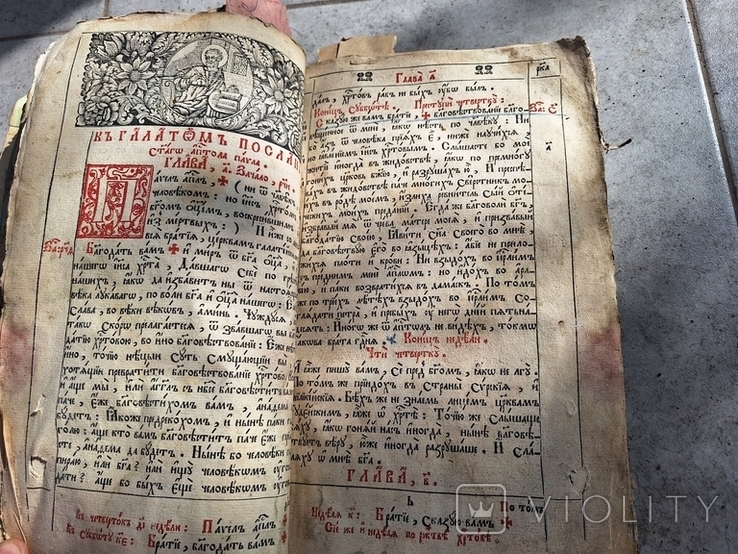 къ галатѡмъ посла
ст҃агѡ ап҃тола паѵла.
глава, а҃. зачало, рч҃ѳ
Паѵелъ ап҃лъ, + ( ни ѿ человѣкъ
человѣкомъ: но іис҃ъ хр҃томъ
бг҃омъ оц҃емъ, воскресившимъ
из̾ мертвыхъ: ) И иже
всѧ братїѧ, церквамъ галаті
Благодать вамъ + и миръ ѿ бг҃а оц҃а,
нашегѡ іис҃а хр҃та, Давшагѡ Себе по грѣ
нашихъ, ꙗкѡ да избавитъ ны ѿ настоѧ
вѣка лукавагѡ, по воли бг҃а и оц҃а нашегѡ: Е
Слава, во вѣки вѣкѡвъ, аминь. Чуждусѧ
такѡ Скорѡ прилагаетесѧ, ѿ звавшагѡ вы бл
датїю хр҃товою, во ино бл҃говѣствованїе: Еже нѣ
ино, точїю нѣцыи Суть Смущающїи вы
хотѧщїи превратити бл҃говѣствованїе хр҃тово:
и аще мы, или аг҃глъ съ нб҃си бл҃говѣститъ
паче, еже бл҃говѣстихомъ вамъ, анаѳема
будетъ: Ꙗкоже предрекохомъ, и нынѣ паки
голю: аще кто вамъ бл҃говѣститъ паче еже
ѧсте, анаѳема да будетъ. Нынѣ бо человѣки
пираю, или бг҃а? или ищу человѣкомъ
дати? аще бо быхъ еще человѣкомъ
въ четвертокъ, Паѵелъ ап҃лъ
въ субботу Братїе, благодать вамъ
Глава а҃
далъ, хр҃товъ рабъ не быхъ ѹбѡ былъ.
Конецъ субботѣ. Преступи четвертку:
Сказую же вамъ братїе, + бл҃говѣствованїе благо
вѣщенное ѿ мене, ꙗкѡ нѣсть по человѣку: Ни
бо азъ ѿ человѣка прїѧхъ е, ниже научихсѧ
но ꙗвленїемъ іис҃ъ хр҃товымъ. Слышасте бо мое
житїе иногда въ жидовствѣ, ꙗкѡ по премногу
гонихъ церковь бж҃їю, и разрушахъ ю,
въ жидовствѣ паче многихъ Сверстникъ мо
ихъ въ родѣ моемъ, излиха ревнитель Сый оте
ческихъ моихъ преданїи. Егда же бл҃говоли бг҃ъ,
избравый мѧ ѿ чрева матере моеѧ, и призвавый
бл҃годатїю Своею, Ꙗвити Сн҃а Своего во мнѣ
да бл҃говѣствую его во ꙗзыцѣхъ: абїе не прило
жихсѧ плоти и крови: Ни взыдохъ во іерⷭ҇лимъ
къ преднимъ мене апⷭ҇лѡмъ: но идохъ во ара
вїю, и паки возвратихсѧ въ дамаскъ. По томъ
же по трїехъ лѣтѣхъ взыдохъ во іерⷭ҇лимъ Со
глѧдати петра, и пребыхъ ѹ него днїй пѧтьна
десѧть: Иного же ѿ апⷭ҇тѡлъ не видѣхъ, токмѡ
іакова брата гд҃нѧ. Конецъ недѣли.
Чти четвертку.
А ꙗже пишу вамъ, Се пред бг҃омъ, ꙗкѡ не лгу.
По томъ же прїидохъ въ Страны Сурскїѧ, и
киликїйскїѧ. Бѣхъ же не знаемъ лицемъ церквамъ
їудейскимъ, ꙗже ѿ хр҃тѣ: Точїю же Слышаще
бѧху, ꙗкѡ гонѧй насъ иногда, нынѣ бл҃говѣ
ствуетъ вѣру, юже иногда разрушаше. И Сла
влѧху ѿ мнѣ бг҃а.
ГЛАВА, в҃.
Недѣлѧ к҃: Братїе, Сказую вамъ По томъ
Сїй же и недѣлѧ по ржⷭ҇твѣ хр҃товѣ.
VIOLITY